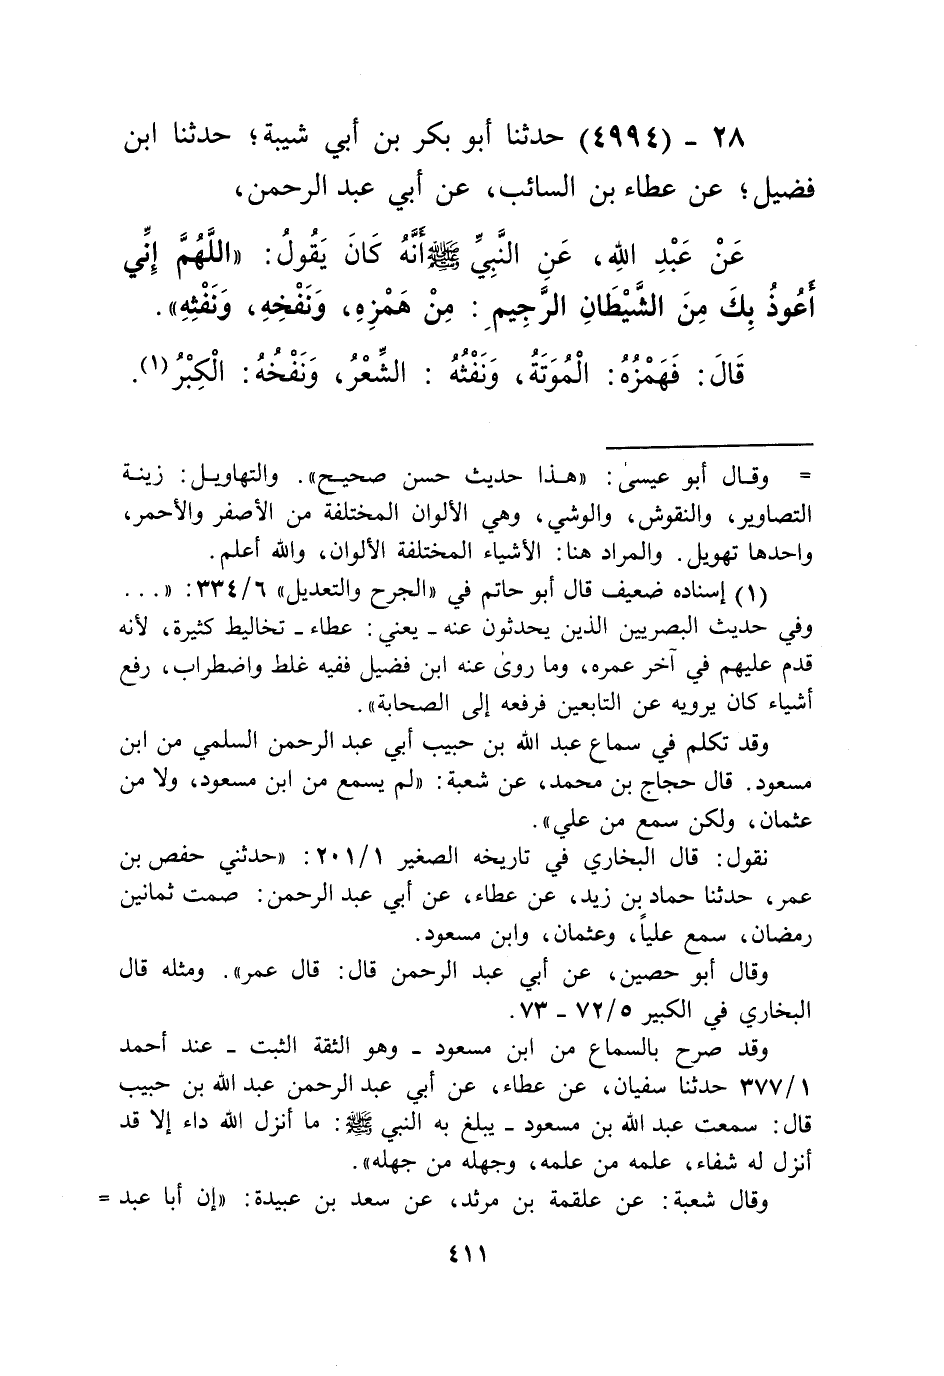 ٢٨ - (٤٩٩٤) حدثنا أبو بكر بن أبي شيبة؛ حدثنا ابن
فضيل؛ عن عطاء بن السائب، عن أبي عبد الرحمن،
عَنْ عَبْدِ اللهِ، عَنِ النَّبِيِّ ﷺ أَنَّهُ كَانَ يَقُولُ: «اللَّهُمَّ إِنِّي
أَعُوذُ بِكَ مِنَ الشَّيْطَانِ الرَّجِيمِ: مِنْ هَمْزِهِ، وَنَفْخِهِ، وَنَفْثِهِ».
قَالَ: فَهَمْزُهُ: الْمُوتَةُ، وَنَفْثُهُ: الشِّعْرُ، وَنَفْخُهُ: الْكِبْرُ(١).
= وقال أبو عيسىٰ: «هذا حديث حسن صحيح». والتهاويل: زينة
التصاوير، والنقوش، والوشي، وهي الألوان المختلفة من الأصفر والأحمر،
واحدها تهويل. والمراد هنا: الأشياء المختلفة الألوان، والله أعلم.
(١) إسناده ضعيف قال أبو حاتم في «الجرح والتعديل» ٦/ ٣٣٤: «...
وفي حديث البصريين الذين يحدثون عنه - يعني: عطاء - تخاليط كثيرة، لأنه
قدم عليهم في آخر عمره، وما روىٰ عنه ابن فضيل ففيه غلط واضطراب، رفع
أشياء كان يرويه عن التابعين فرفعه إلى الصحابة».
وقد تكلم في سماع عبد الله بن حبيب أبي عبد الرحمن السلمي من ابن
مسعود. قال حجاج بن محمد، عن شعبة: «لم يسمع من ابن مسعود، ولا من
عثمان، ولكن سمع من علي».
نقول: قال البخاري في تاريخه الصغير ١/ ٢٠١: «حدثني حفص بن
عمر، حدثنا حماد بن زيد، عن عطاء، عن أبي عبد الرحمن: صمت ثمانين
رمضان، سمع علياً، وعثمان، وابن مسعود.
وقال أبو حصين، عن أبي عبد الرحمن قال: قال عمر». ومثله قال
البخاري في الكبير ٥/ ٧٢ - ٧٣.
وقد صرح بالسماع من ابن مسعود - وهو الثقة الثبت - عند أحمد
١/ ٣٧٧ حدثنا سفيان، عن عطاء، عن أبي عبد الرحمن عبد الله بن حبيب
قال: سمعت عبد الله بن مسعود - يبلغ به النبي ﷺ: ما أنزل الله داء إلا قد
أنزل له شفاء، علمه من علمه، وجهله من جهله».
وقال شعبة: عن علقمة بن مرثد، عن سعد بن عبيدة: «إن أبا عبد =
٤١١